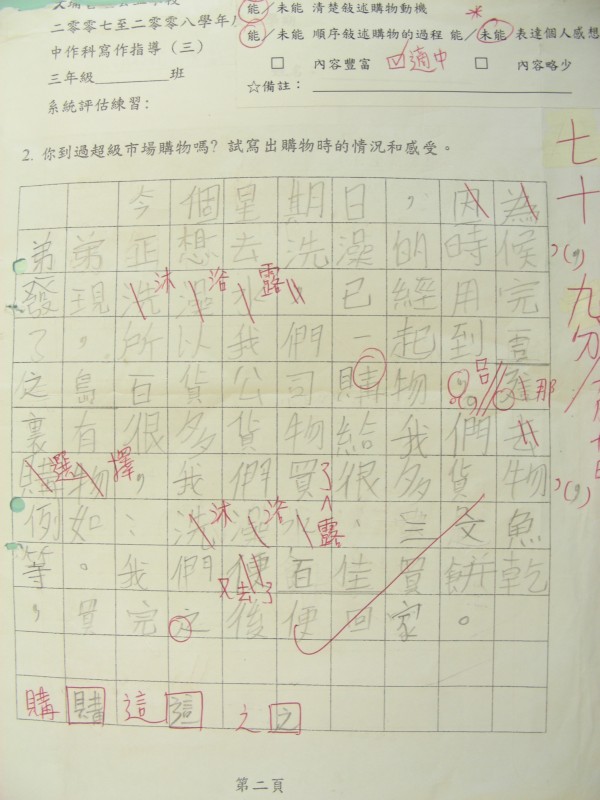 二零零七至二零零八學年
中作科寫作指導（三）
三年級________班
系統評估練習：
能／未能 清楚敍述購物動機
能／未能 順序敍述購物的過程 能／未能 表達個人感想
□ 內容豐富 ☑ 適中 □ 內容略少
☆備註：
2. 你到過超級市場購物嗎？試寫出購物時的情況和感受。
今個星期日，因為
弟弟正想去洗澡的時候
發現洗澡 已經用完 沐浴露
了，所以我們一起到吉
之島百貨公司購物， 那
裏有很多貨物給我們去
購物，我們買了很多貨物 選擇
例如：洗澡 、三文魚 沐浴露
等。我們便百佳買餅乾 又去了
，買完之後便回家。
七十九分
購 購 這 這 之 之
第二頁